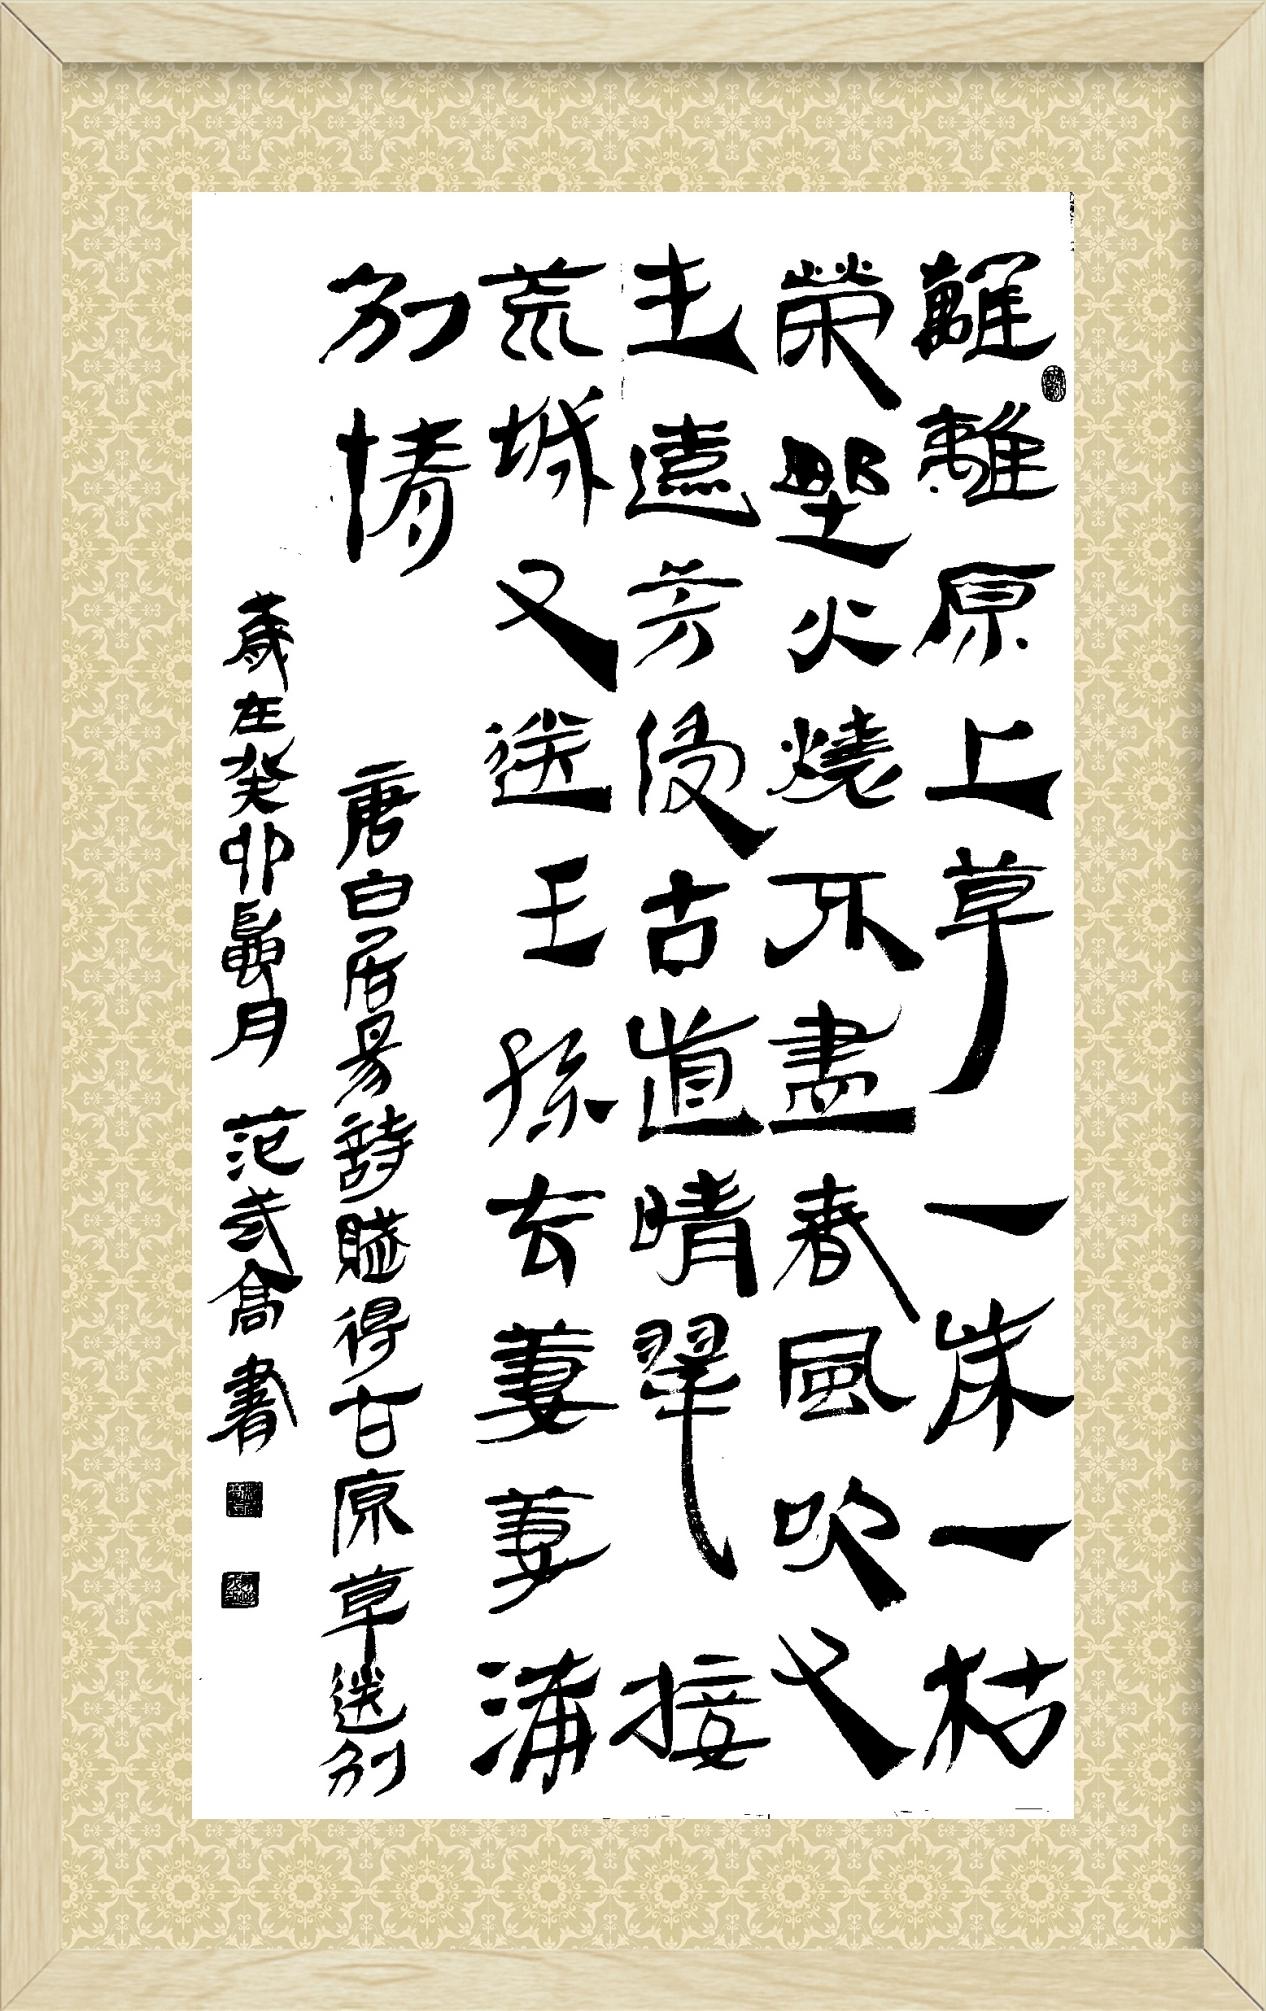 離離原上草一歲一枯
榮野火燒不盡春風吹又
生遠芳侵古道晴翠接
荒城又送王孫去萋萋滿
別情
唐白居易詩賦得古原草送別
歲在癸卯蠶月 范武高書